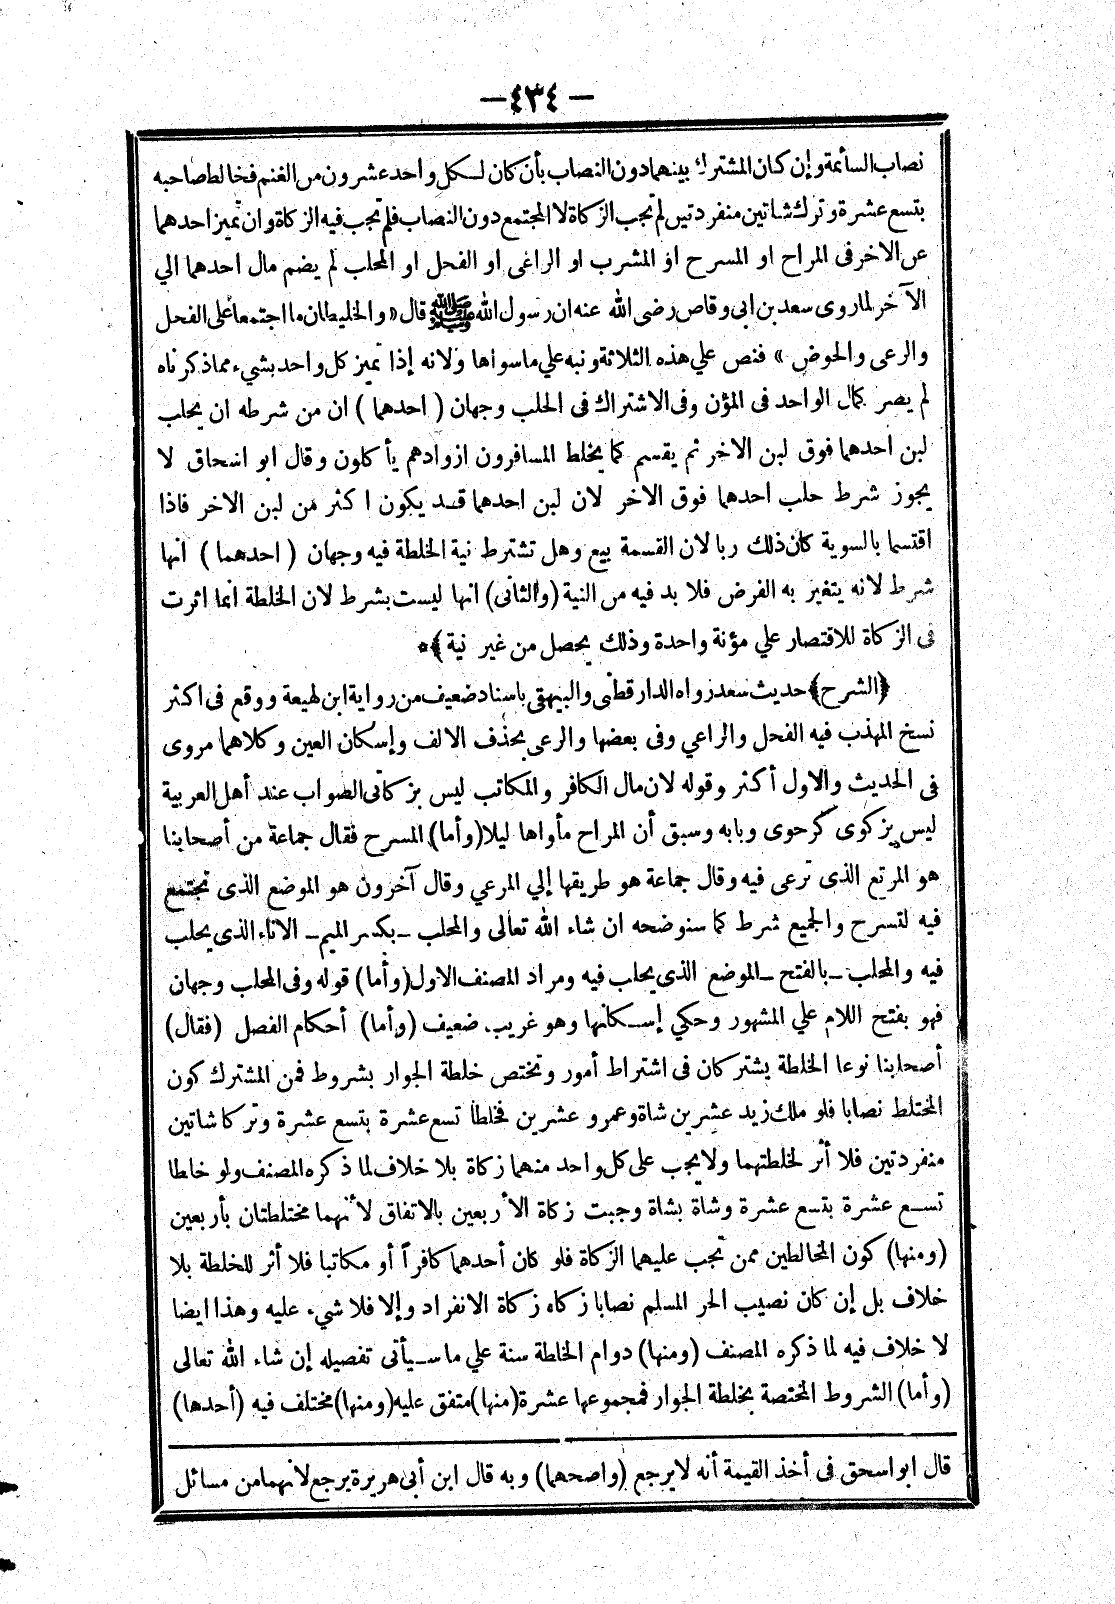 — ٤٣٤ —
نصاب السائمة وإن كان المشترك بينهما دون النصاب بأن كان لكل واحد عشرون من الغنم فخالط صاحبه
بتسع عشرة وترك شاتين منفردتين لم تجب الزكاة لا المجتمع دون النصاب فلم تجب فيه الزكاة وان تميز احدهما
عن الاخر فى المراح او المسرح او المشرب او الراعى او الفحل او المحلب لم يضم مال احدهما الي
الآخر لما روى سعد بن ابى وقاص رضى الله عنه ان رسول الله ﷺ قال « والخليطان ما اجتمعا على الفحل
والرعى والحوض » فنص علي هذه الثلاثة ونبه علي ما سواها ولانه إذا تميز كل واحد بشيء مما ذكرناه
لم يصر كمال الواحد فى المؤن وفى الاشتراك فى الحلب وجهان ( احدهما ) ان من شرطه ان يحلب
لبن احدهما فوق لبن الاخر ثم يقسم كما يخلط المسافرون ازوادهم يأكلون وقال ابو اسحاق لا
يجوز شرط حلب احدهما فوق الاخر لان لبن احدهما قد يكون اكثر من لبن الاخر فاذا
اقتسما بالسوية كان ذلك ربا لان القسمة بيع وهل تشترط نية الخلطة فيه وجهان ( احدهما ) انها
شرط لانه يتغير به الفرض فلا بد فيه من النية (والثانى) انها ليست بشرط لان الخلطة انما اثرت
فى الزكاة للاقتصار علي مؤنة واحدة وذلك يحصل من غير نية ﴾*
﴿الشرح﴾ حديث سعد رواه الدارقطنى والبيهقى باسناد ضعيف من رواية ابن لهيعة ووقع فى اكثر
نسخ المهذب فيه الفحل والراعي وفى بعضها والرعى بحذف الالف وإسكان العين وكلاهما مروى
فى الحديث والاول أكثر وقوله لان مال الكافر والمكاتب ليس بزكاتى الصواب عند أهل العربية
ليس بزكوى كرحوى وبابه وسبق أن المراح مأواها ليلا (وأما) المسرح فقال جماعة من أصحابنا
هو المرتع الذى ترعى فيه وقال جماعة هو طريقها إلي المرعي وقال آخرون هو الموضع الذى تجتمع
فيه لتسرح والجميع شرط كما سنوضحه ان شاء الله تعالى والمحلب ــ بكسر الميم ــ الاناء الذى يحلب
فيه والمحلب ــ بالفتح ــ الموضع الذى يحلب فيه ومراد المصنف الاول (وأما) قوله وفى المحلب وجهان
فهو بفتح اللام علي المشهور وحكي إسكانها وهو غريب ضعيف (وأما) أحكام الفصل (فقال)
أصحابنا نوعا الخلطة يشتركان فى اشتراط أمور وتختص خلطة الجوار بشروط فمن المشترك كون
المختلط نصابا فلو ملك زيد عشرين شاة وعمرو عشرين فخلطا تسع عشرة بتسع عشرة وتركا شاتين
منفردتين فلا أثر لخلطتهما ولا يجب على كل واحد منهما زكاة بلا خلاف لما ذكره المصنف ولو خلطا
تسع عشرة بتسع عشرة وشاة بشاة وجبت زكاة الأربعين بالاتفاق لأنهما مختلطتان بأربعين
(ومنها) كون المخالطين ممن تجب عليهما الزكاة فلو كان أحدهما كافرآ أو مكاتبا فلا أثر للخلطة بلا
خلاف بل إن كان نصيب الحر المسلم نصابا زكاه زكاة الانفراد وإلا فلا شيء عليه وهذا ايضا
لا خلاف فيه لما ذكره المصنف (ومنها) دوام الخلطة سنة علي ما سيأتى تفصيله إن شاء الله تعالى
(وأما) الشروط المختصة بخلطة الجوار فمجموعها عشرة (منها) متفق عليه (ومنها) مختلف فيه (أحدها)
قال ابو اسحق فى أخذ القيمة أنه لا يرجع (واصحهما) وبه قال ابن أبى هريرة يرجع لانهما من مسائل